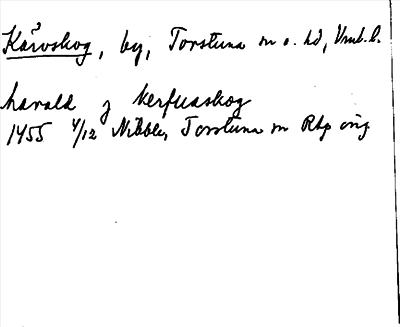 Kärvskog, by, Torstuna sn o. hd, Vml. l.
harald j kerfuaskog
1455 4/12 Nibble, Torstuna sn Rap orig